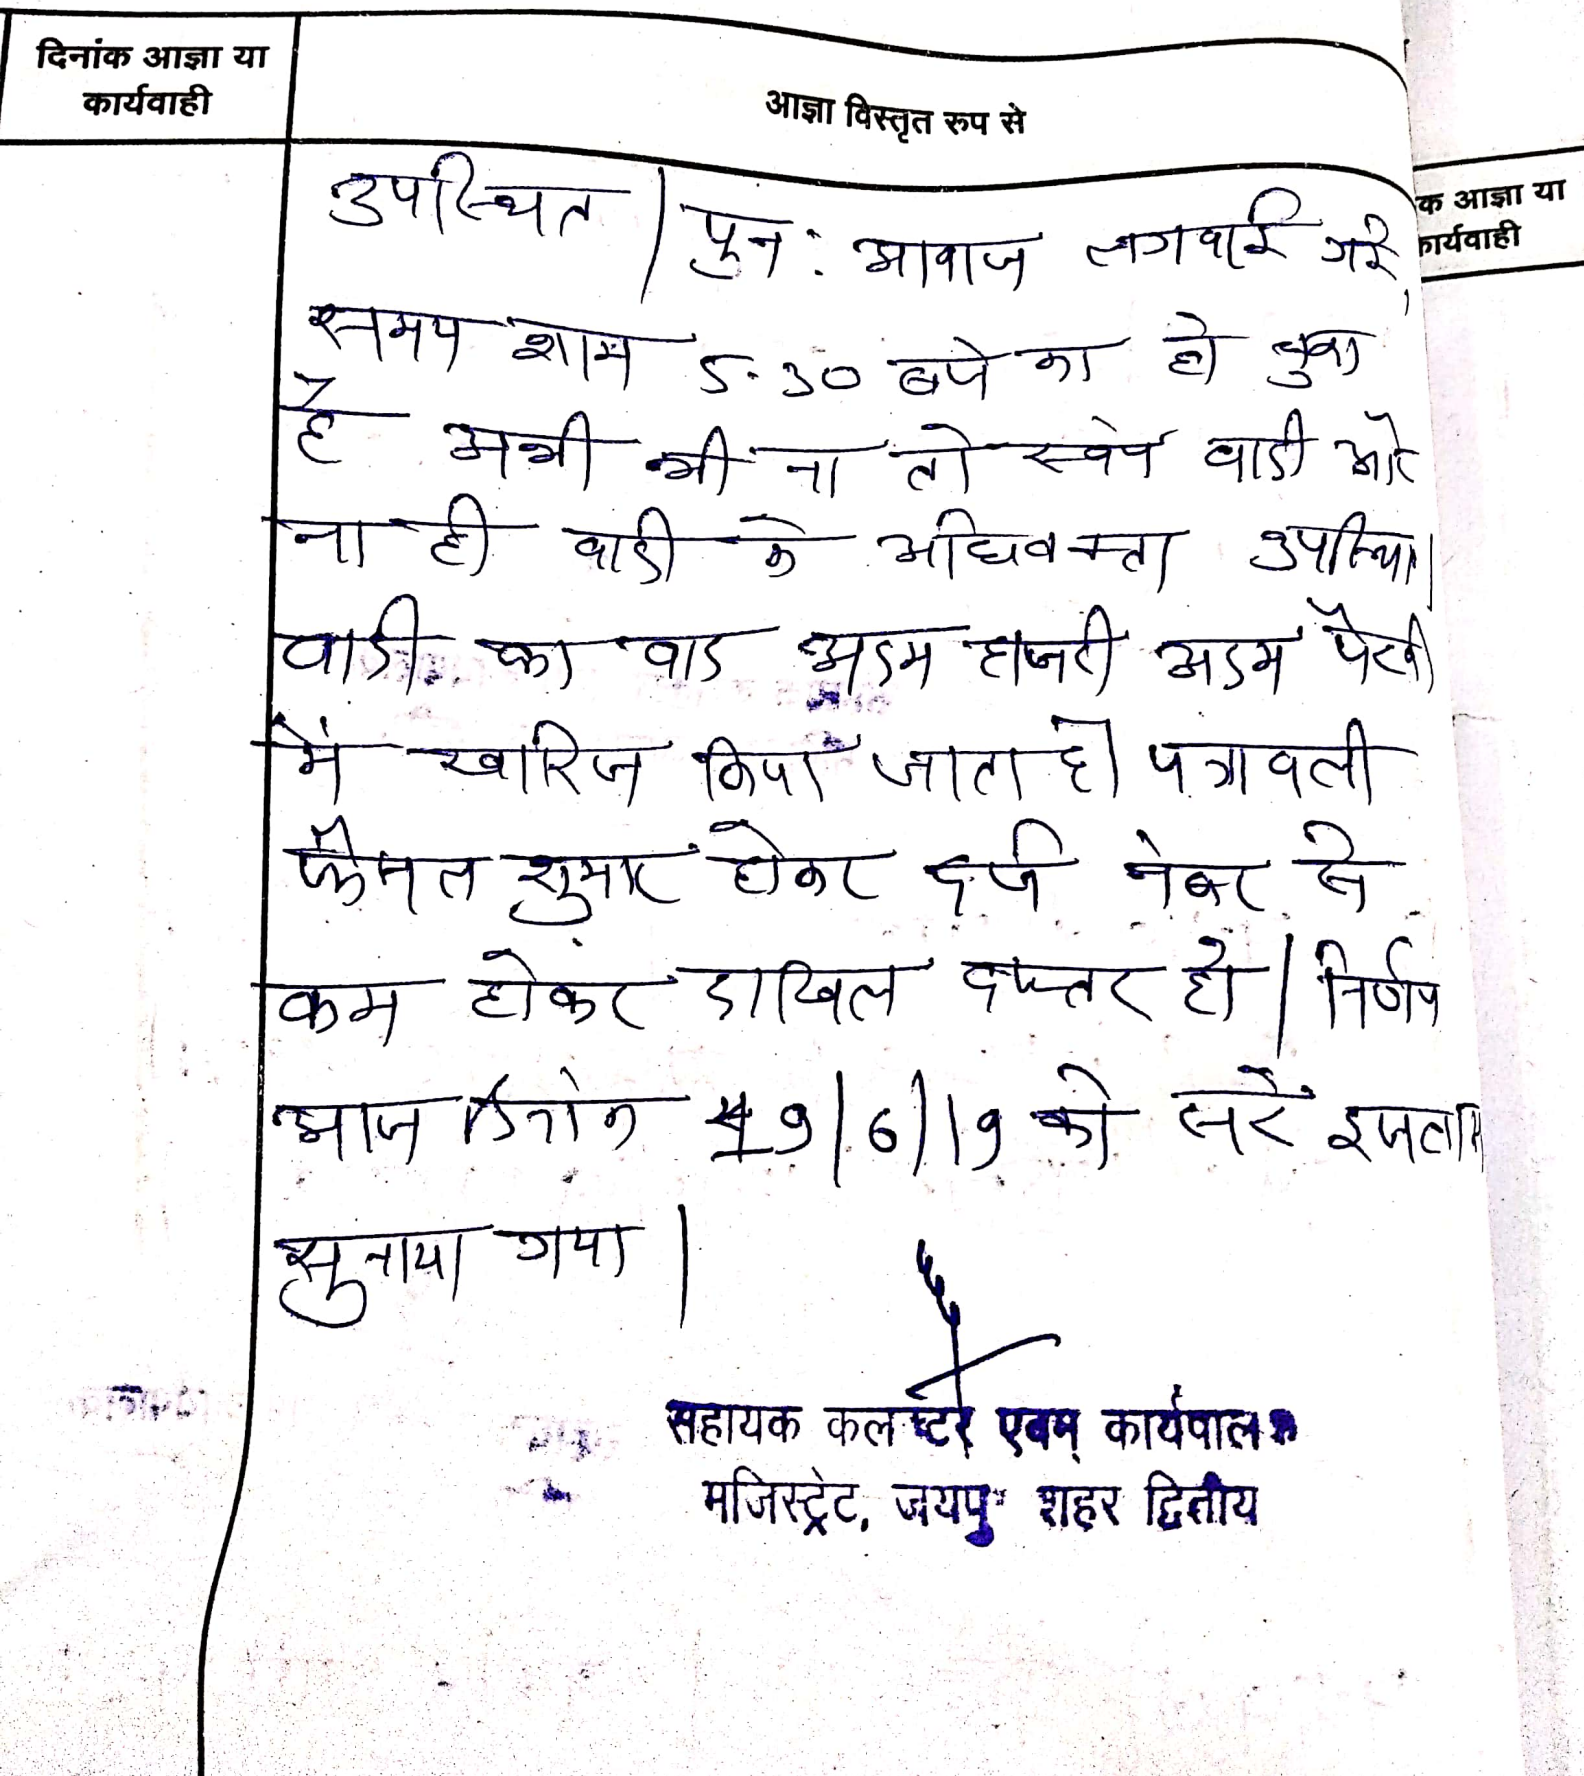 दिनांक आज्ञा या
कार्यवाही
आज्ञा विस्तृत रूप से
क आज्ञा या
कार्यवाही
उपस्थित। पुनः आवाज लगवाई गई,
समय शाम 5.30 बजे का हो चुका
है अभी भी ना तो स्वयं वादी और
ना ही वादी के अधिवक्ता उपस्थित।
वादी का वाद अदम हाजरी अदम पैरवी
में खारिज किया जाता है। पत्रावली
फैसल शुमार होकर दर्ज नंबर से
कम होकर दाखिल दफ्तर हो। निर्णय
आज दिनांक 19/6/19 को सरे इजलास
सुनाया गया।
सहायक कलक्टर एवम् कार्यपालक
मजिस्ट्रेट, जयपुर शहर द्वितीय